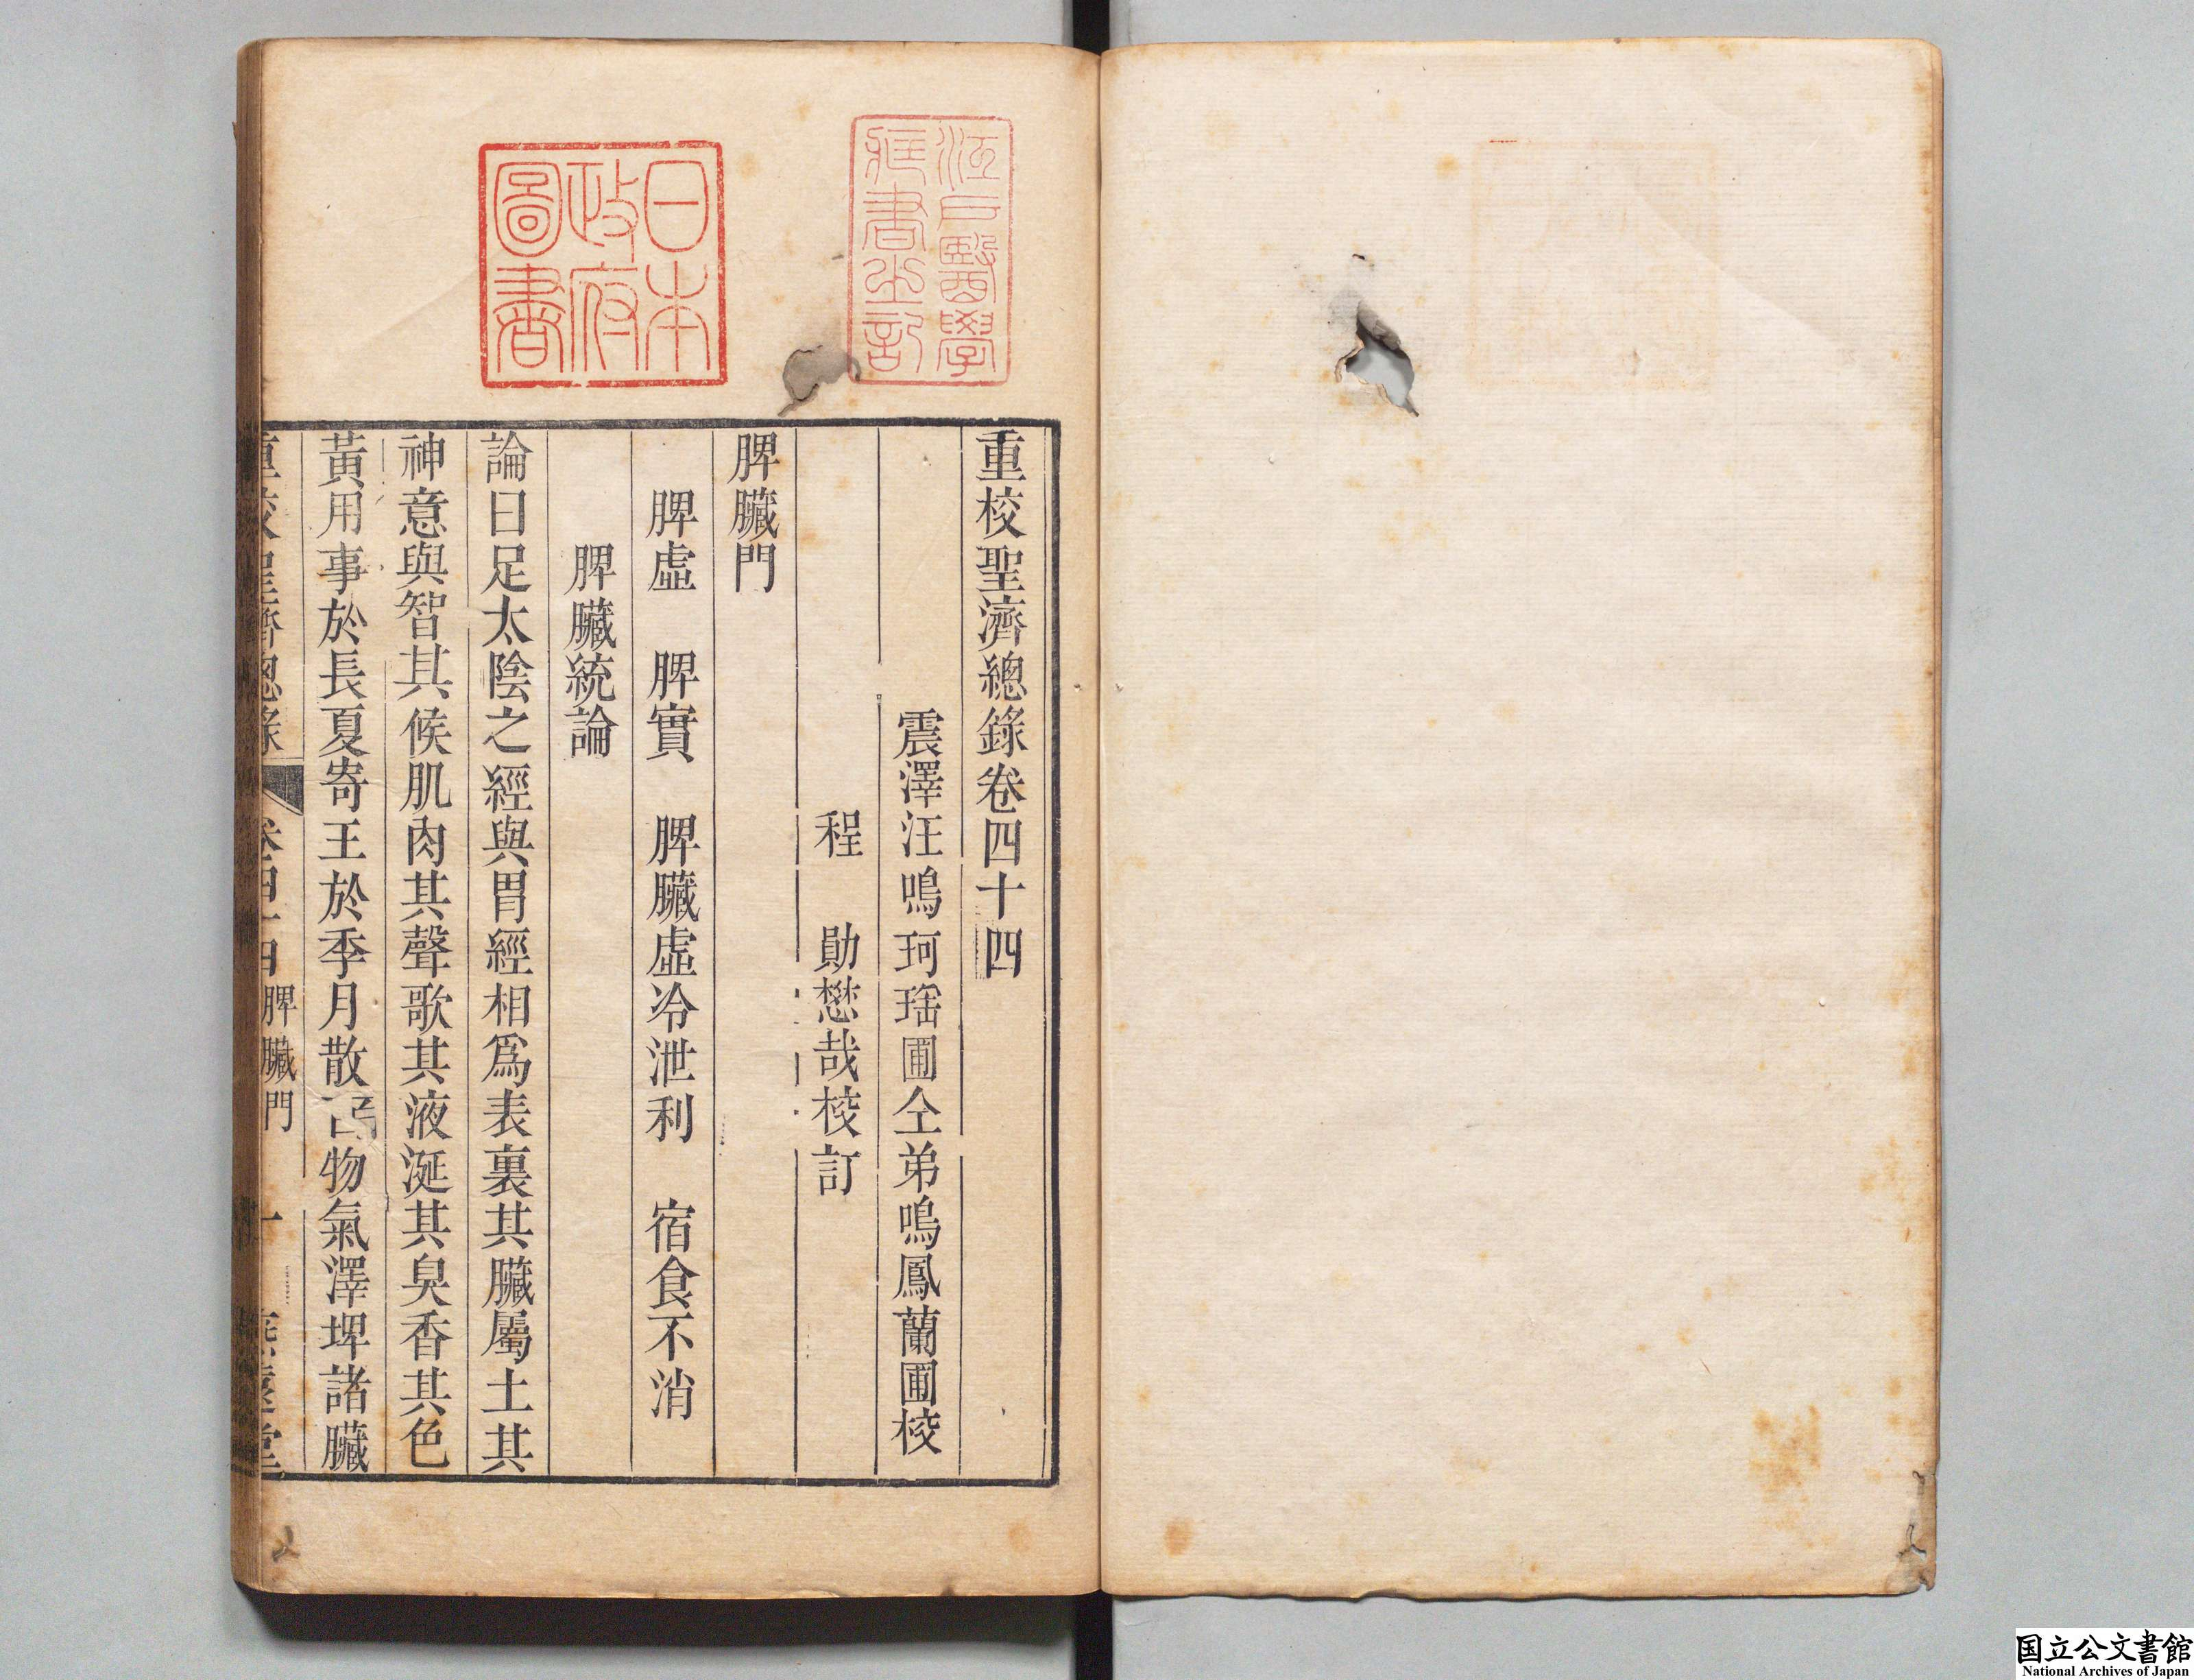 江戶醫學
藏書之記
日本
政府
圖書
重校聖濟總錄卷四十四
震澤汪鳴珂瑶圃仝弟鳴鳳蘭圃校
程　勛懋哉校訂
脾臟門
脾虛　脾實　脾臟虛冷泄利　宿食不消
脾臟統論
論曰足太陰之經與胃經相爲表裏其臟屬土其
神意與智其候肌肉其聲歌其液涎其臭香其色
黃用事於長夏寄王於季月散　物氣澤埤諸臟
重校聖濟總錄　卷四十四脾臟門　一　　堂
国立公文書館
National Archives of Japan